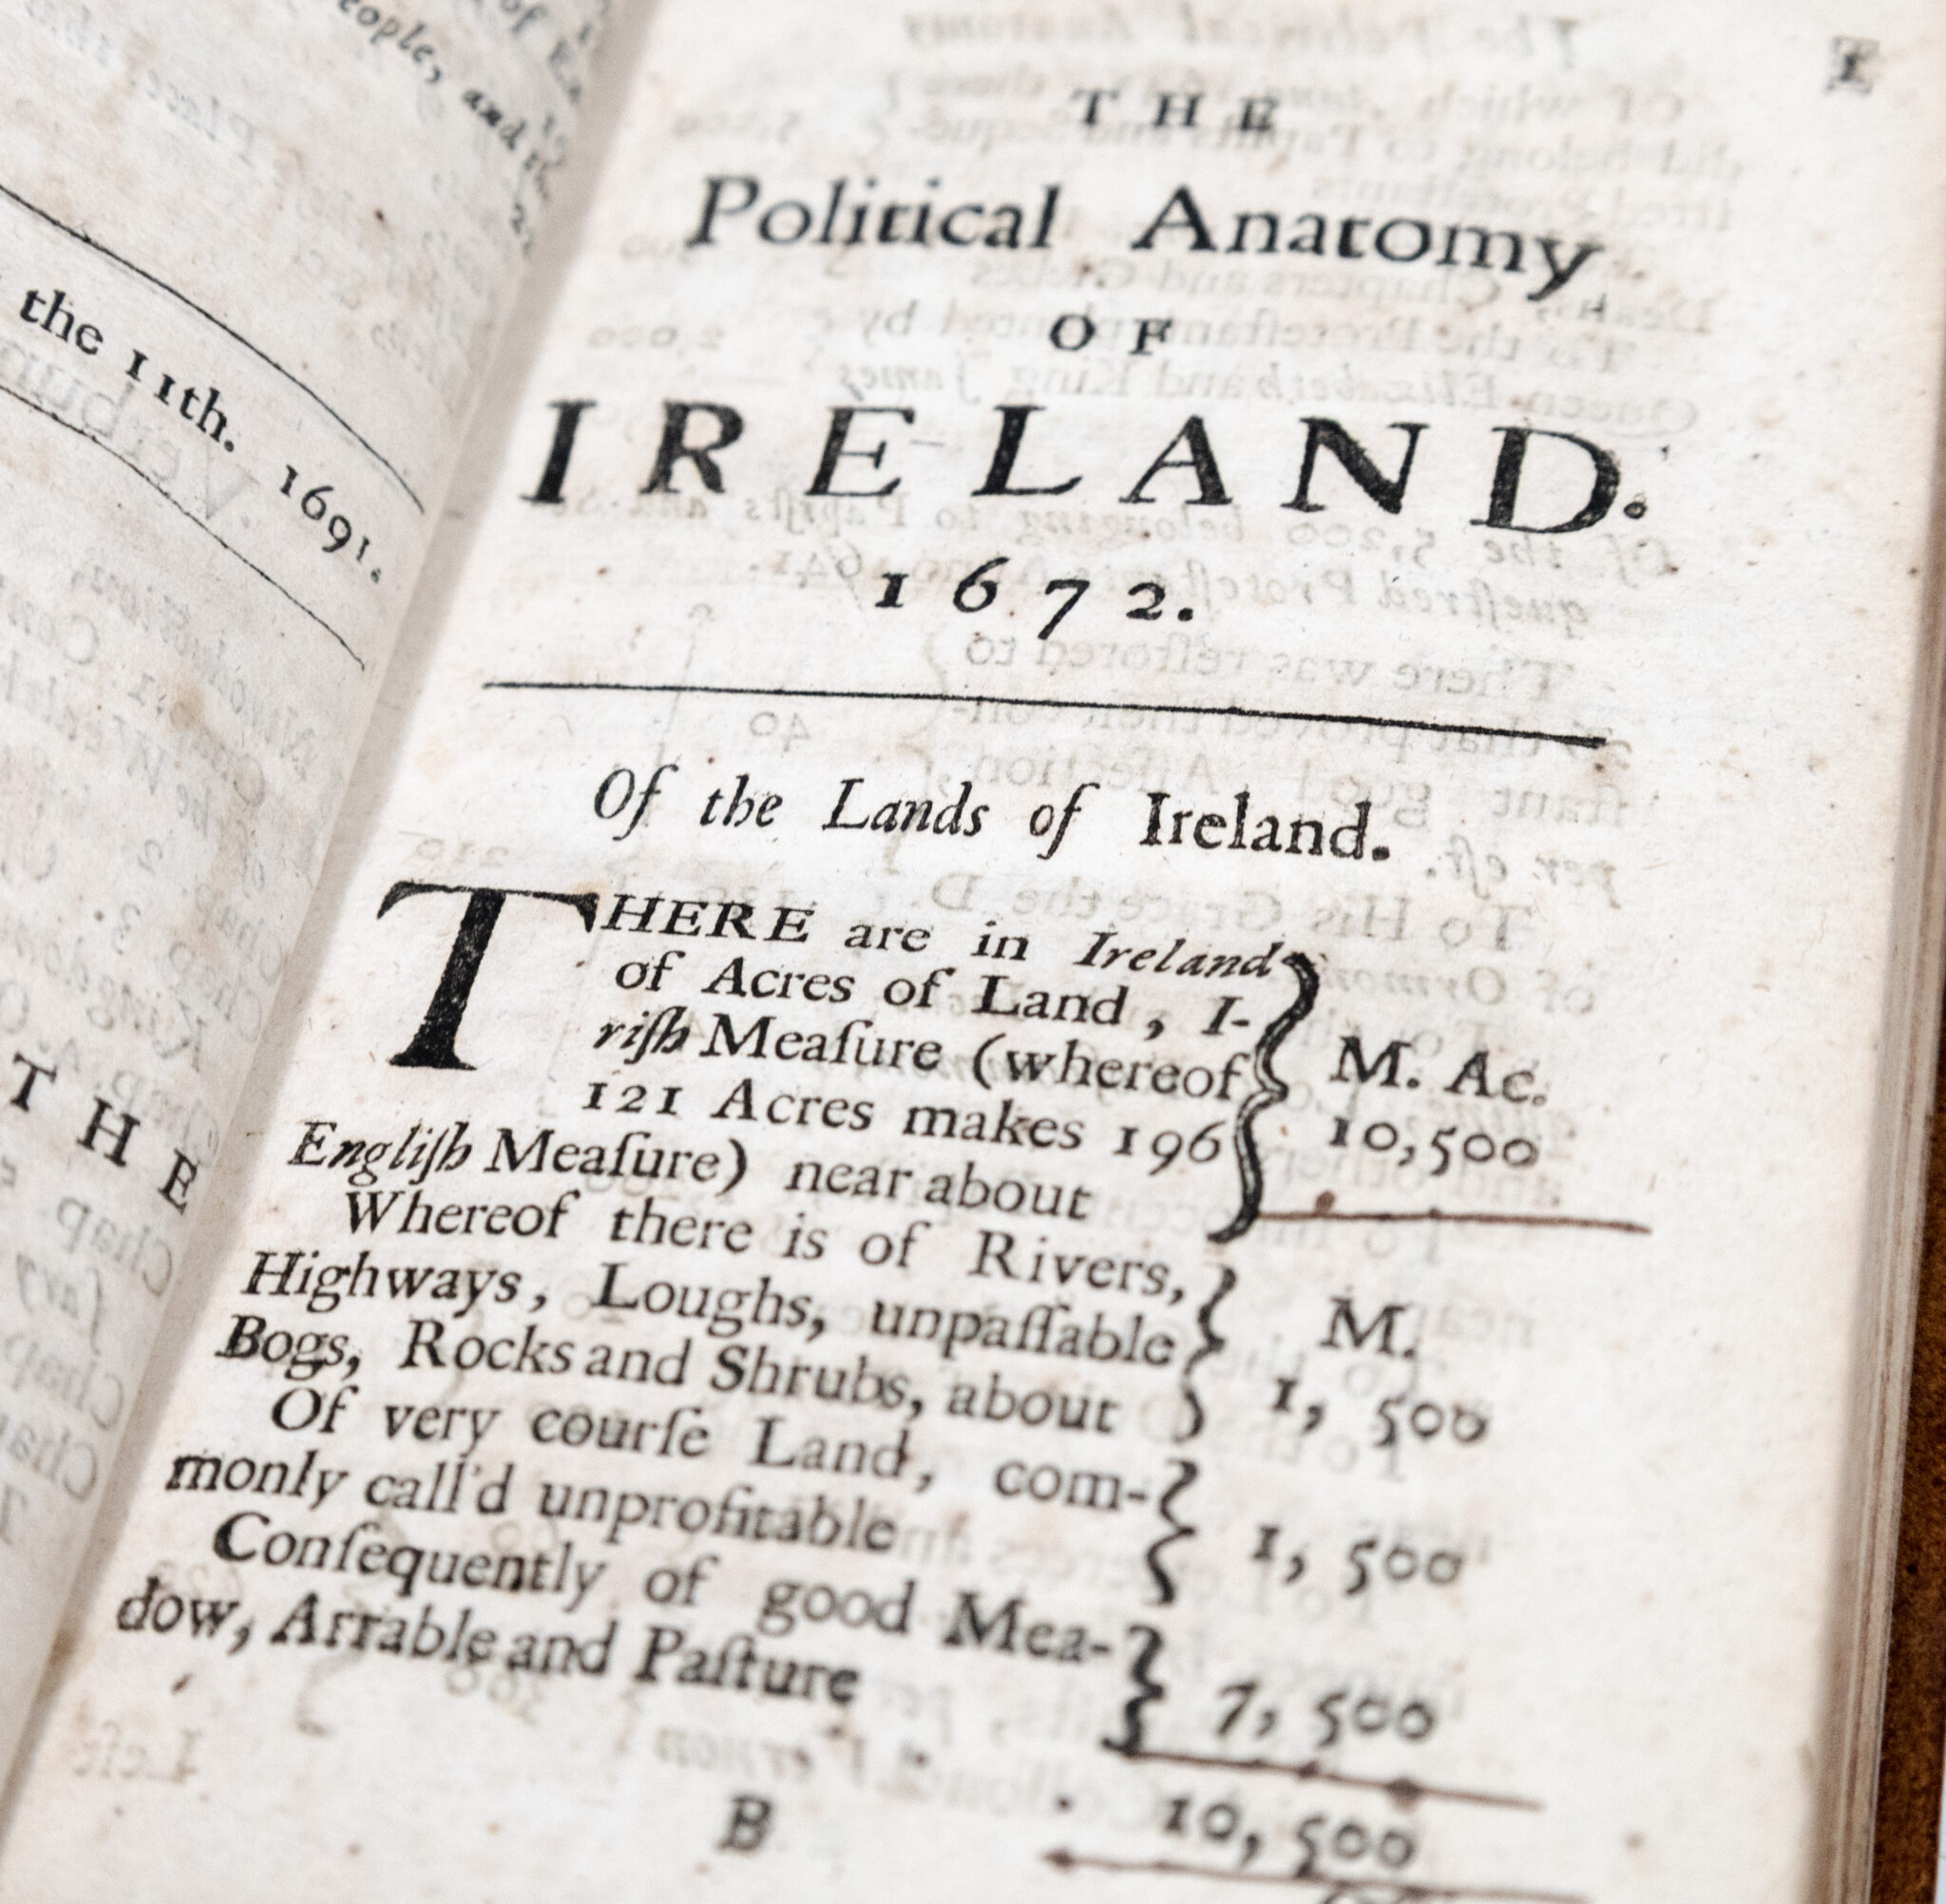 of E
eople, and
the 11th. 1691.
THE
1
THE
Political Anatomy
OF
IRELAND.
1672.
Of the Lands of Ireland.
THERE are in Ireland
of Acres of Land, I-
riſh Meaſure (whereof
121 Acres makes 196
Engliſh Meaſure) near about
M. Ac.
10,500
Whereof there is of Rivers,
Highways, Loughs, unpaſſable
Bogs, Rocks and Shrubs, about
M.
1,500
Of very courſe Land, com-
monly call'd unprofitable
1,500
Conſequently of good Mea-
dow, Arrable and Paſture
7,500
10,500
B